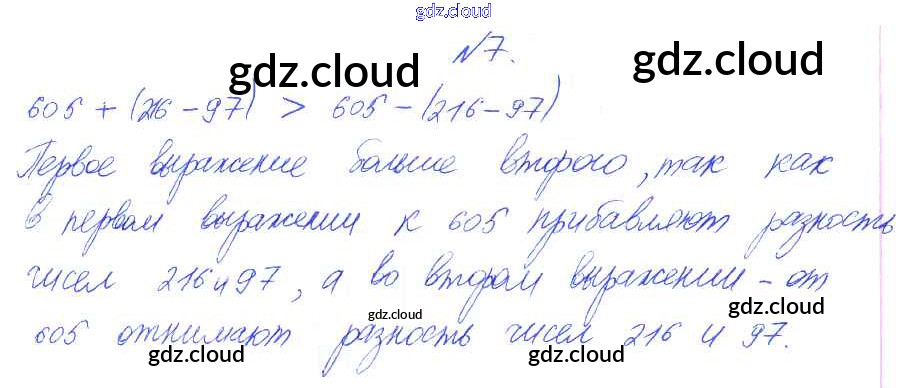 gdz.cloud
gdz.cloud
gdz.cloud
gdz.cloud
№7.
605 + (216 - 97) > 605 - (216 - 97)
Первое выражение больше второго, так как
в первом выражении к 605 прибавляют разность
чисел 216 и 97, а во втором выражении - от
gdz.cloud
gdz.cloud
605 отнимают разность чисел 216 и 97.
gdz.cloud
gdz.cloud